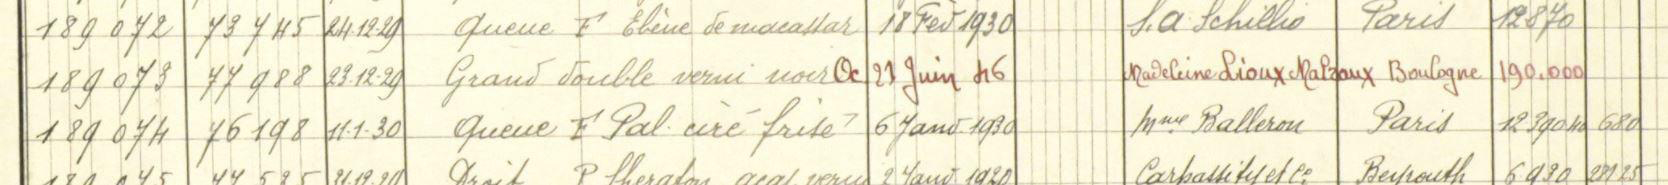 189 072 73 745 24.12.29 Queue F Ebène de macassar 18 Fev 1930 S.A. Schillio Paris 12870
189 073 77 988 23.12.29 Grand double verni noir Oc 21 Juin 46 Madeleine Lioux Malraux Boulogne 190.000
189 074 76 198 11.1.30 Queue F Pal. ciré frisé 6 Janv. 1930 Mme Balleron Paris 12390 40 680
189 075 77 585 21.12.29 Droit P Sheraton acaj. verni 2 Janv. 1930 et Cie Beyrouth 6930 28125